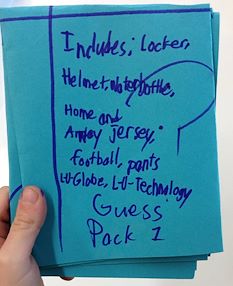 Includes; Locker,
Helmet, Water bottle,
Home and
Away jersey,
football, pants
LU-Globe, L-U-Technology
Guess
Pack 1